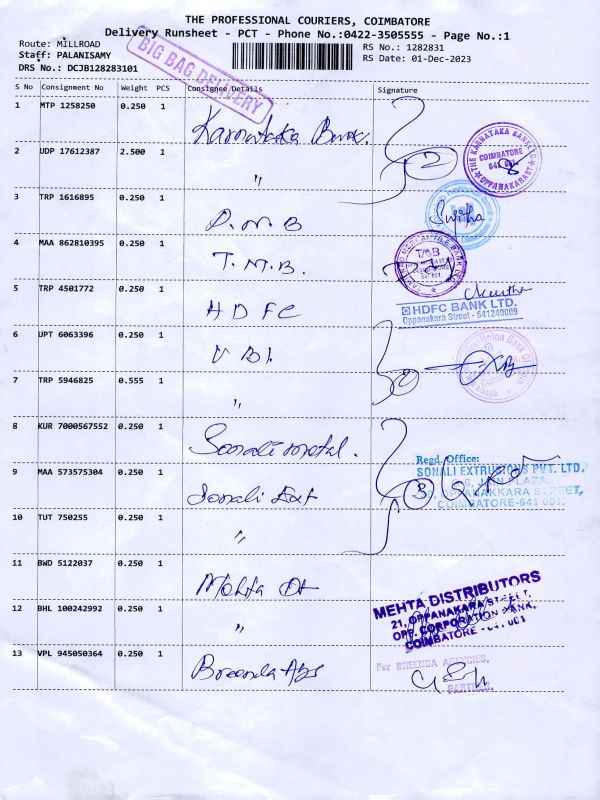 THE PROFESSIONAL COURIERS, COIMBATORE
Delivery Runsheet - PCT - Phone No.:0422-3505555 - Page No.:1
Route: MILLROAD
Staff: PALANISAMY
DRS No.: DCJB128283101
BIG BAG DELIVERY
RS No.: 1282831
RS Date: 01-Dec-2023
S No Consignment No Weight PCS Consignee Details Signature
1 MTP 1258250 0.250 1 Karnataka Bank.
THE KARNATAKA BANK LTD
COIMBATORE
641 001
OPPANAKARA ST
2 UDP 17612387 2.500 1 "
2
3 TRP 1616895 0.250 1 P.M.B
Sujitha
4 MAA 862810395 0.250 1 T.M.B.
TMB
5 TRP 4501772 0.250 1 HDFC
HDFC BANK LTD.
Oppanakara Street - 641240009
6 UPT 6063396 0.250 1 U B I.
Union Bank Of
7 TRP 5946825 0.555 1 "
2
8 KUR 7000567552 0.250 1 Sonali metal.
Regd. Office:
SONALI EXTRUSIONS PVT. LTD.
JAIN PLAZA
OPPANAKKARA STREET,
COIMBATORE-641 001.
9 MAA 573575304 0.250 1 Sonali Ext
3
10 TUT 750255 0.250 1 "
11 BWD 5122037 0.250 1 Mehta Dt
MEHTA DISTRIBUTORS
21, OPPANAKARA STREET,
OPP. CORPORATION BANK,
COIMBATORE - 641 001
12 BHL 100242992 0.250 1 "
13 VPL 945050364 0.250 1 Breenda Ags
For BREENDA AGENCIES,
PARTNER.